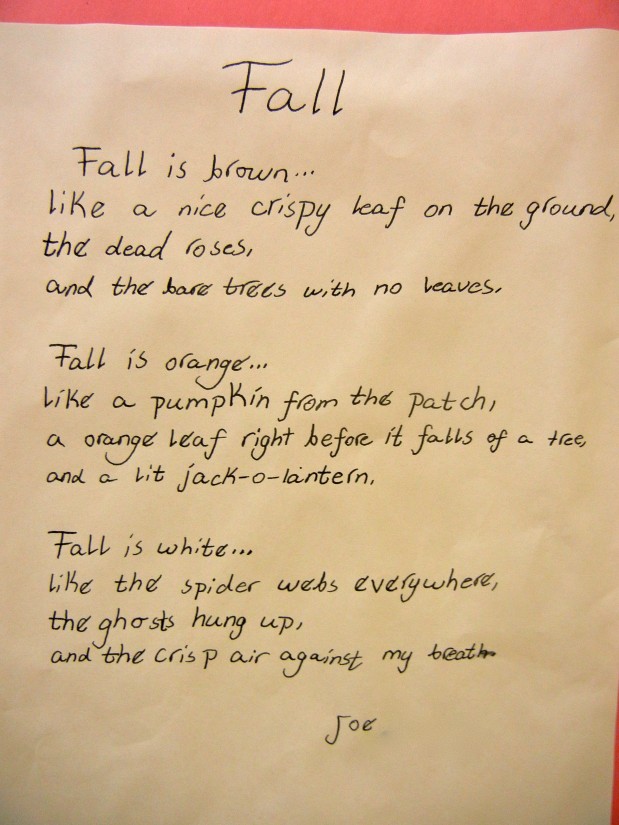 Fall
Fall is brown...
like a nice crispy leaf on the ground,
the dead roses,
and the bare trees with no leaves.
Fall is orange...
like a pumpkin from the patch,
a orange leaf right before it falls of a tree,
and a lit jack-o-lantern.
Fall is white...
like the spider webs everywhere,
the ghosts hung up,
and the crisp air against my breath
Joe